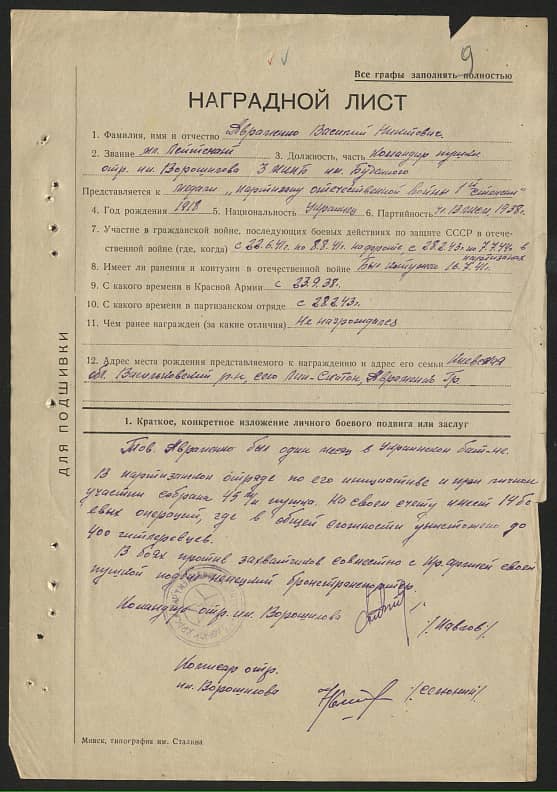 9
Все графы заполнять полностью
НАГРАДНОЙ ЛИСТ
1. Фамилия, имя и отчество Авраменко Василий Никитович
2. Звание мл. Лейтенант 3. Должность, часть командир пушки
отр. им. Ворошилова 3 МинПБ им. Буденного
Представляется к медали „партизану отечественной войны 1ой степени"
4. Год рождения 1918 5. Национальность Украинец 6. Партийность чл. ВЛКСМ с 1938г.
7. Участие в гражданской войне, последующих боевых действиях по защите СССР в отече-
ственной войне (где, когда) с 22.6.41г по 8.8.41г. на фронте, с 28.2.43г по 7.7.44г в
партизанах
8. Имеет ли ранения и контузии в отечественной войне Был контужен 16.7.41г.
9. С какого времени в Красной Армии с 23.9.38г.
10. С какого времени в партизанском отряде с 28.2.43г.
11. Чем ранее награжден (за какие отличия) Не награждался
12. Адрес места рождения представляемого к награждению и адрес его семьи Киевская
обл. Васильковский р-н, село Авраменко Гр.
ДЛЯ ПОДШИВКИ
1. Краткое, конкретное изложение личного боевого подвига или заслуг
Тов. Авраменко был один месяц в Украинском бат-не.
В партизанском отряде по его инициативе и при личном
участии собрана 45 м/м пушка. На своем счету имеет 14 бо-
евых операций, где в общей сложности уничтожено до
400 гитлеровцев.
В боях против захватчиков совместно с Кр. армией своей
пушкой подбил немецкий бронетранспортер.
Командир отр. им. Ворошилова
/Павлов/
Комиссар отр.
им. Ворошилова
Минск, типография им. Сталина